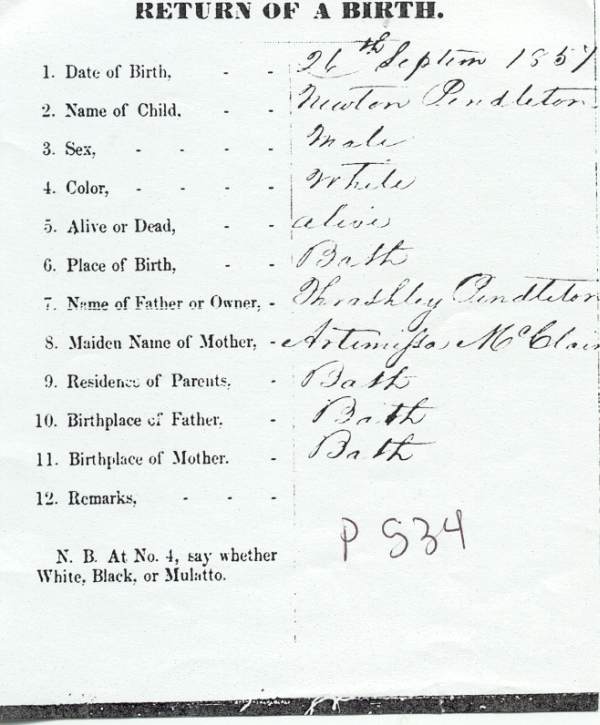 RETURN OF A BIRTH.
1. Date of Birth, - - 26th Septem 1857
2. Name of Child, - - Newton Pendleton
3. Sex, - - - - Male
4. Color, - - - - White
5. Alive or Dead, - - alive
6. Place of Birth, - - Bath
7. Name of Father or Owner, - Thrashley Pendleton
8. Maiden Name of Mother, - Artemissa McClain
9. Residence of Parents, - Bath
10. Birthplace of Father, - Bath
11. Birthplace of Mother. - Bath
12. Remarks, - - -
P 534
N. B. At No. 4, say whether
White, Black, or Mulatto.